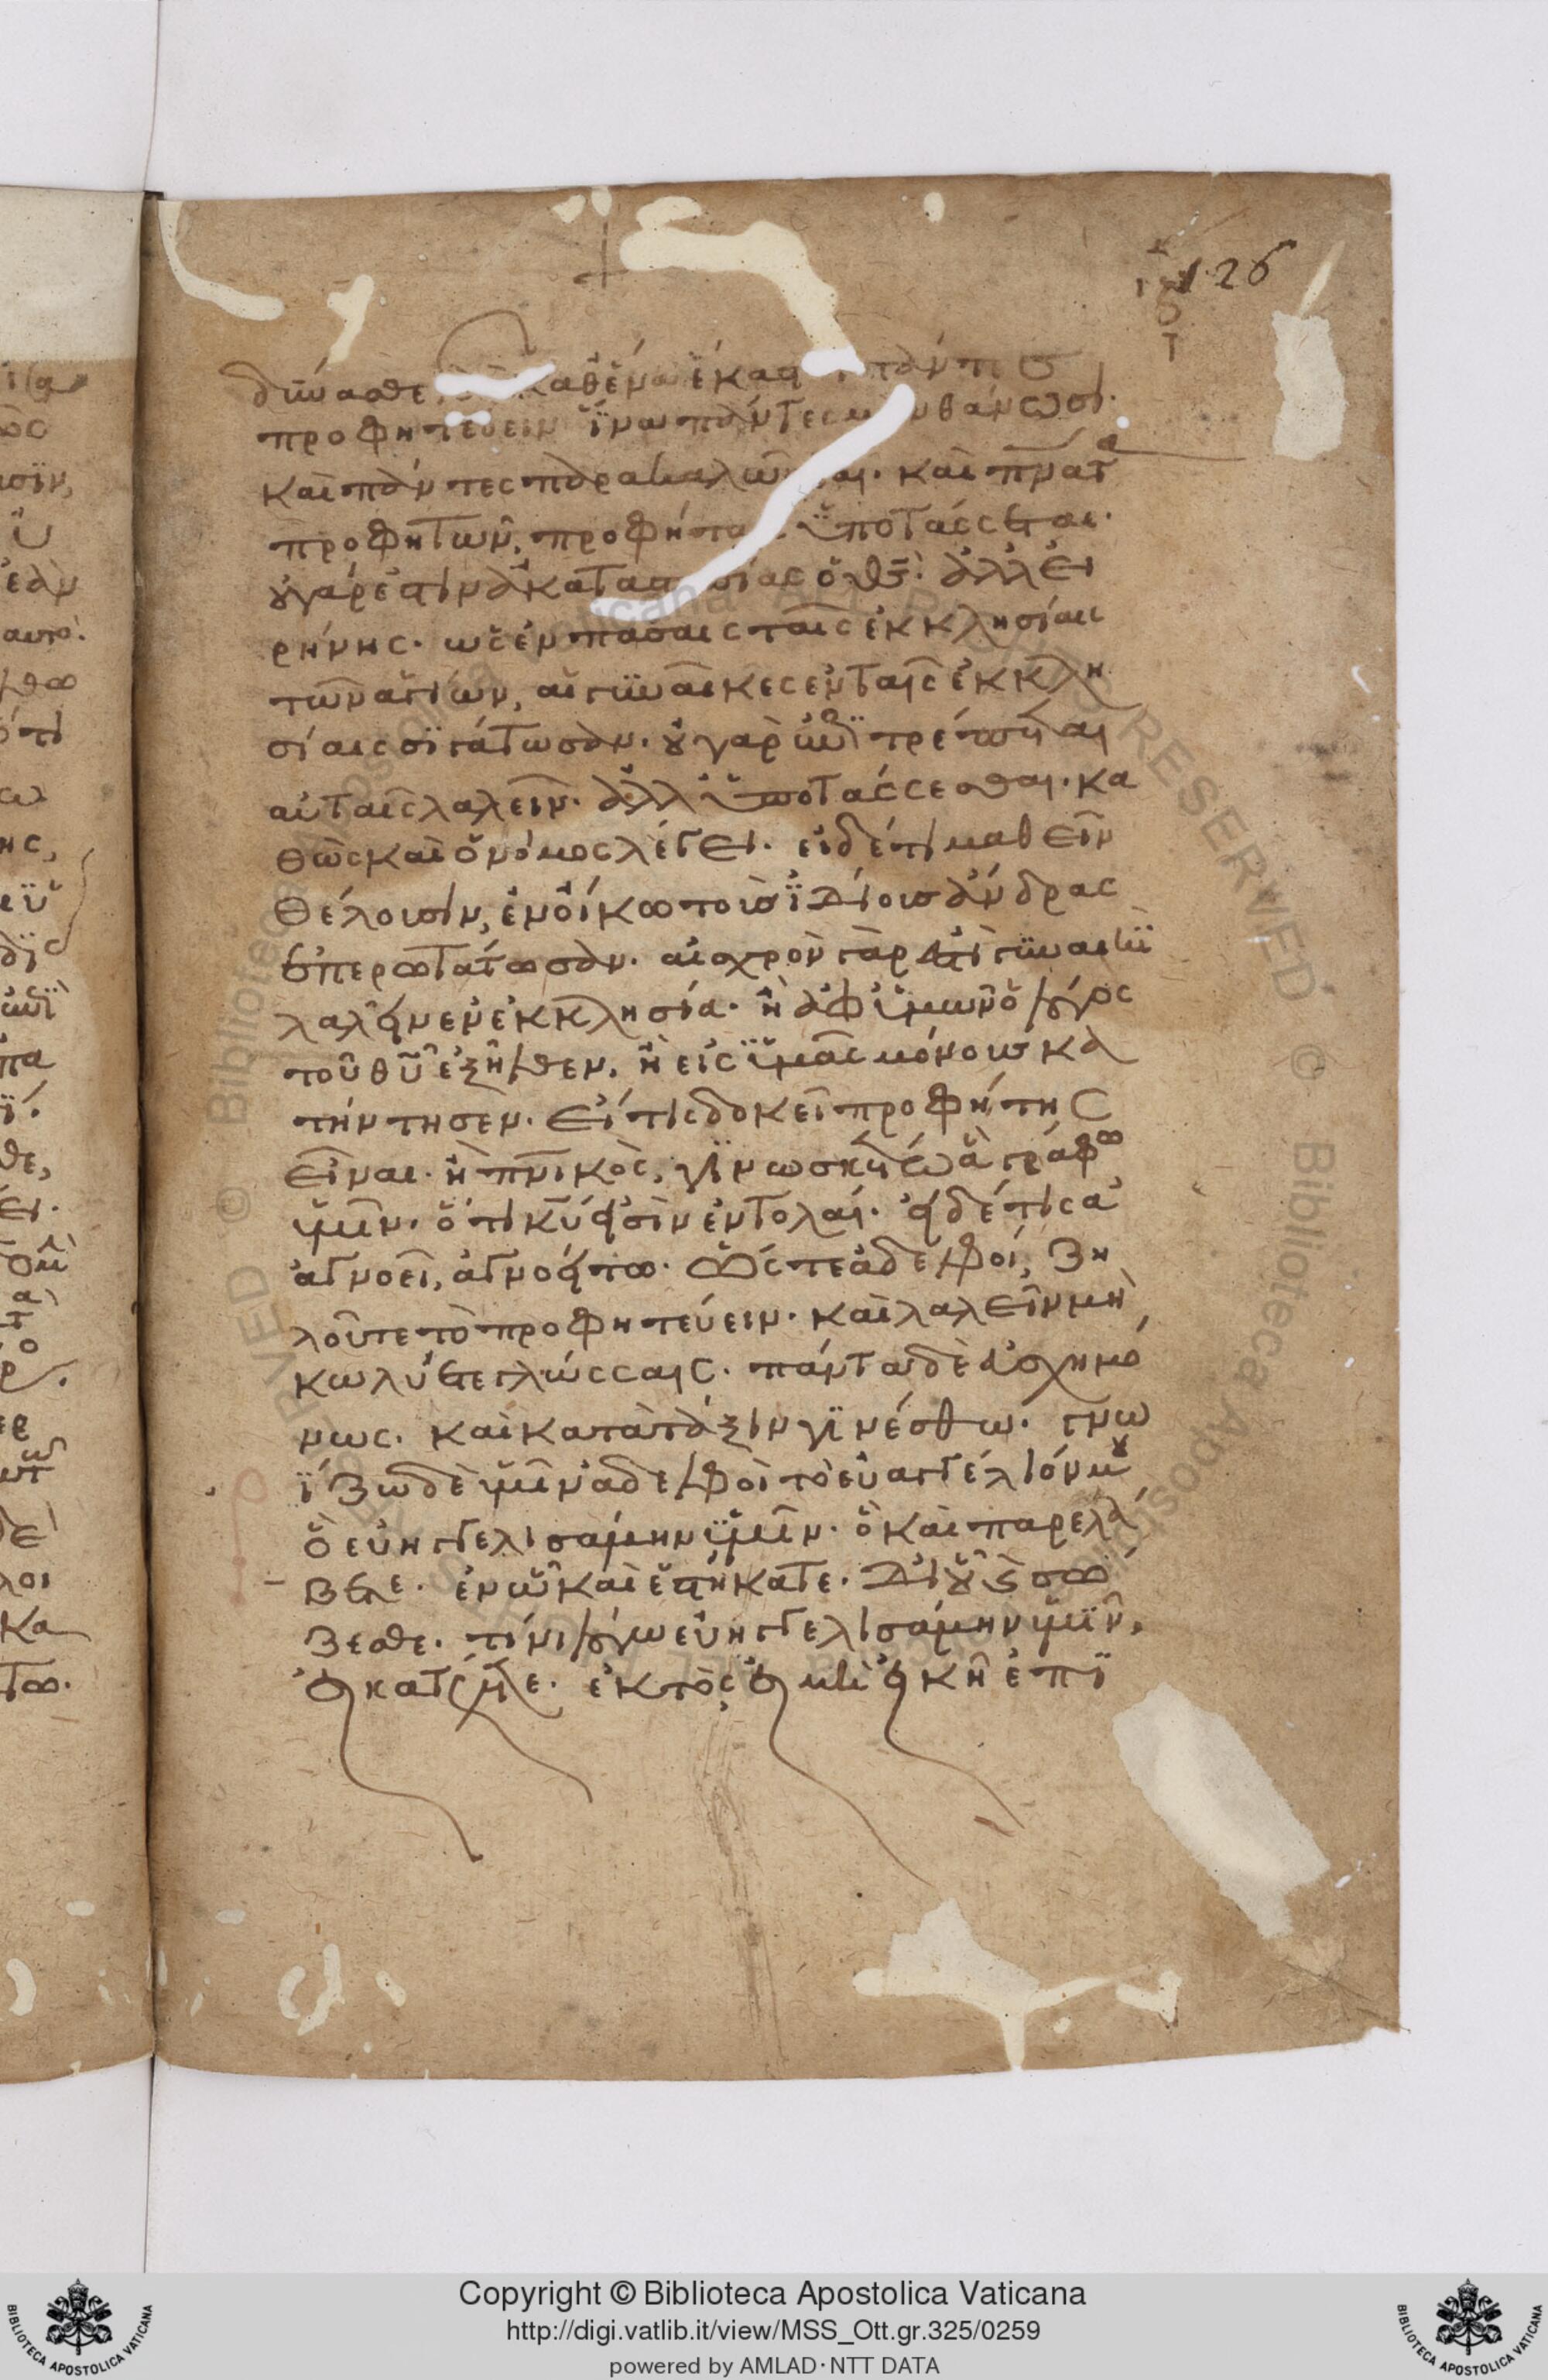 126
δύνασθε καθένα ἕκαστ πάντες
προφητεύειν ἵνα πάντες μ νθάνωσι·
καὶ πάντες παρακαλῶν ται· καὶ πν̅ατα
προφητῶν, προφήται ὑποτάσσεται·
οὐ γάρ ἐστιν ἀκαταστασίας ὁ θς̅· ἀλλ εἰ
ρήνης· ὡς ἐν πάσαις ταῖς ἐκκλησίαις
τῶν ἁγίων, αἱ γυναῖκες ἐν ταῖς ἐκκλη
σίαις σιγάτωσαν· οὐ γὰρ ἐπιτρέπεται
αὐταῖς λαλεῖν· ἀλλ ὑποτάσσεσθαι· κα
θὼς καὶ ὁ νόμος λέγει· εἰ δέ τι μαθεῖν
θέλουσιν, ἐν οἴκω τοὺς ἰδίους ἄνδρας
ἐπερωτάτωσαν· αἰσχρὸν γάρ ἐστι γυναικὶ
λαλεῖν ἐν ἐκκλησία· ἢ ἀφ ὑμῶν ὁ λόγος
τοῦ θυ̅ ἐξῆλθεν, ἢ εἰς ὑμᾶς μόνους κα
τήντησεν· εἴ τις δοκεῖ προφήτης
εἶναι· ἢ πν̅ικὸς, γινωσκέτω ἃ γράφω
ὑμῖν· ὅτι κυ̅ εἰσὶν ἐντολαί· εἰ δέ τις ἀ
ἀγνοεῖ, ἀγνοείτω· ὥστε ἀδελφοί, ζη
λοῦτε τὸ προφητεύειν· καὶ λαλεῖν μὴ
κωλύετε γλώσσαις· πάντα δὲ εὐσχημό
νως· καὶ κατὰ τάξιν γινέσθω· γνω
ρίζω δὲ ὑμῖν ἀδελφοὶ τὸ εὐαγγέλιόν μου
ὃ εὐηγγελισάμην ὑμῖν· ὃ καὶ παρελά
βετε· ἐν ᾧ καὶ ἑστήκατε· δι οὗ καὶ σώ
ζεσθε· τίνι λόγω εὐηγγελισάμην ὑμῖν,
εἰ κατέχετε· ἐκτὸς εἰ μὴ εἰκῆ ἐπι
Copyright © Biblioteca Apostolica Vaticana
http://digi.vatlib.it/view/MSS_Ott.gr.325/0259
powered by AMLAD·NTT DATA